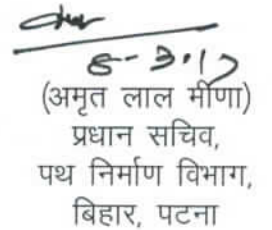 8-3.17
(अमृत लाल मीणा)
प्रधान सचिव,
पथ निर्माण विभाग,
बिहार, पटना